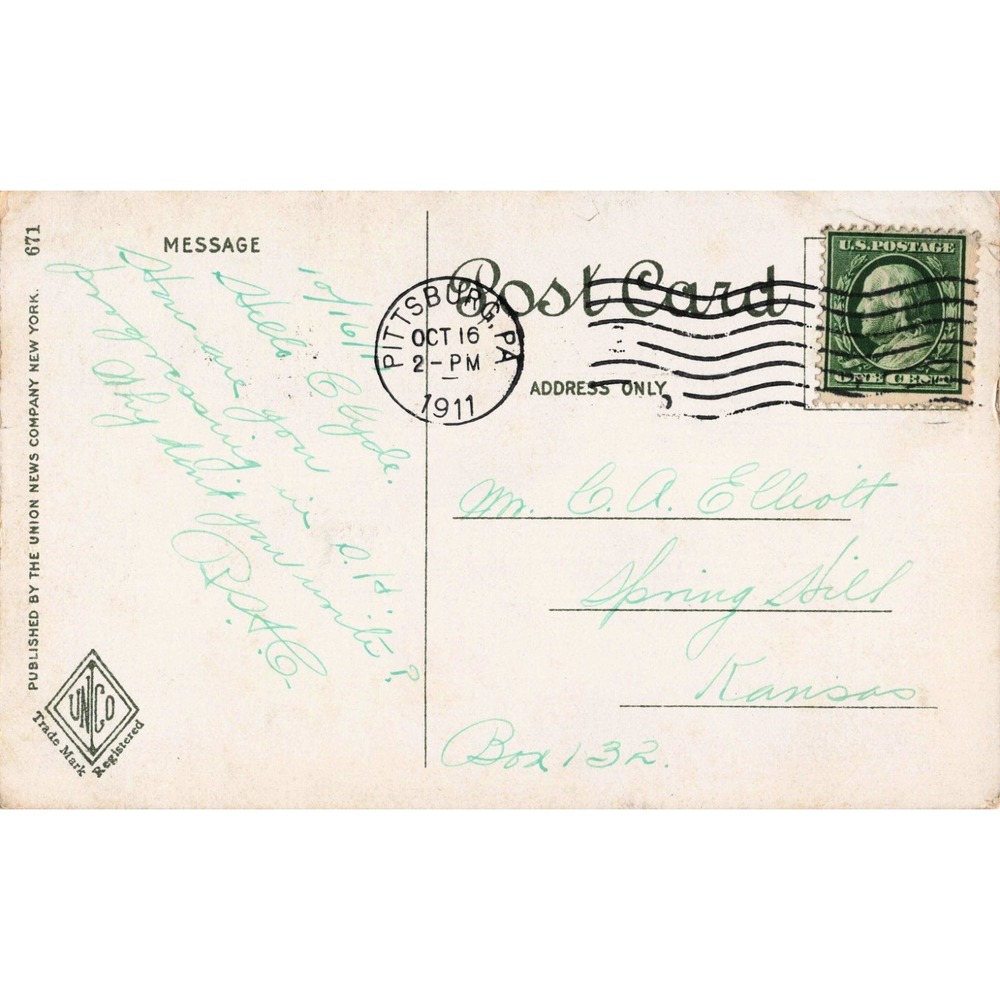 671
PUBLISHED BY THE UNION NEWS COMPANY NEW YORK.
UNCO
Trade Mark Registered
MESSAGE
10/16/11
Hello Clyde.
How are you
progressing in S. H.?
Why don't you write?
R.H.C.
Post Card
ADDRESS ONLY
PITTSBURG, PA
OCT 16
2-PM
1911
U.S. POSTAGE
ONE CENT
Mr. C. A. Elliott
Spring Hill
Kansas
Box 132.